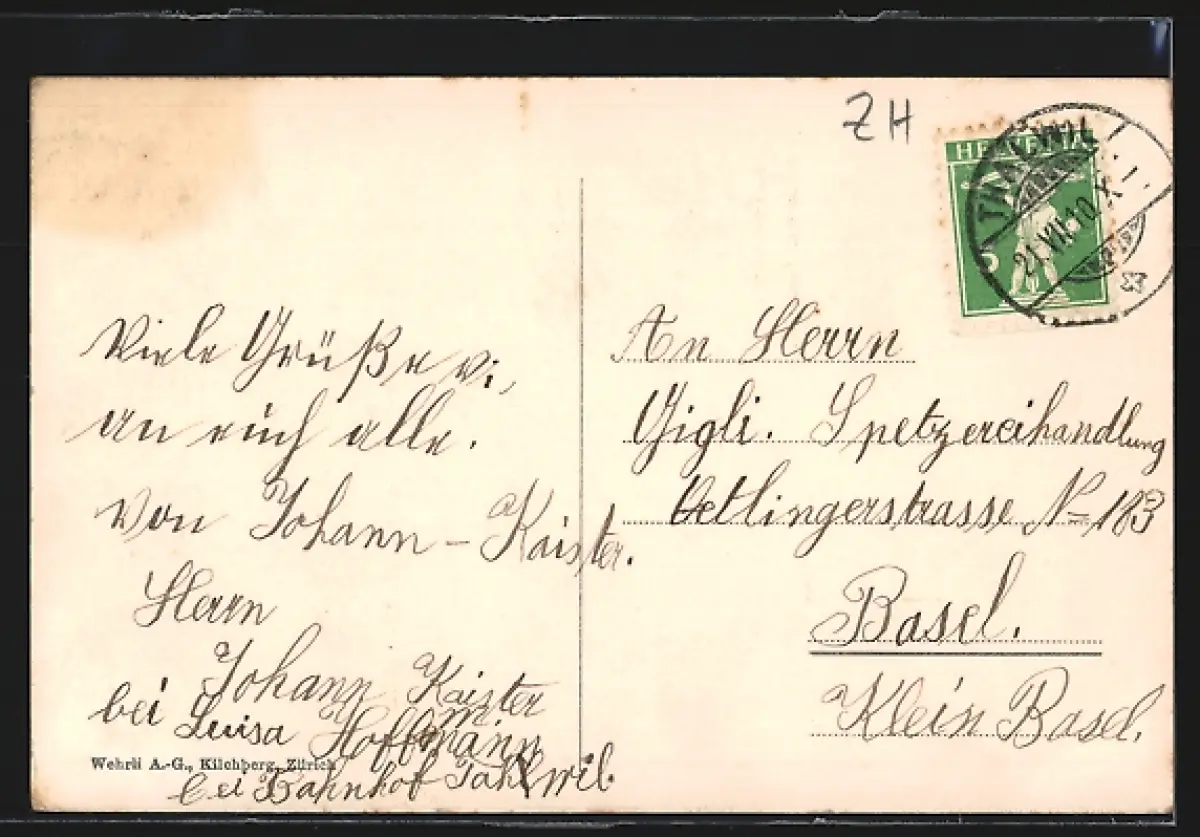 ZH
HELVETIA
THALWIL
21.VII.10.X
5
Viele Grüße
an euch alle.
von Johann - Kaister.
Herrn
Johann Kaister
bei Luisa Hoffmann
bei Bahnhof Tahlwil.
Wehrli A.-G., Kilchberg, Zürich
An Herrn
Gigli. Spetzereihandlung
Oetlingerstrasse No 183
Basel.
Klein Basel.